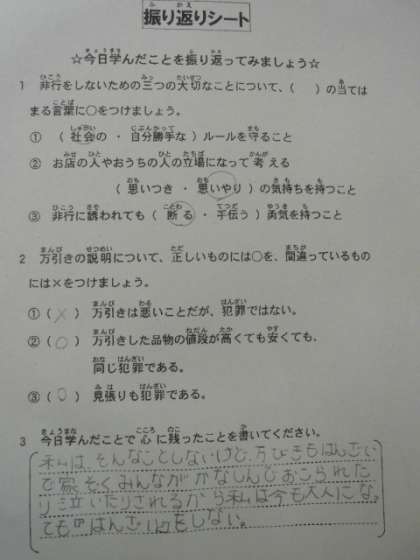 振り返りシート
☆今日学んだことを振り返ってみましょう☆
1 非行をしないための三つの大切なことについて、( )の当ては
まる言葉に○をつけましょう。
① ( 社会の ・ 自分勝手な ) ルールを守ること
② お店の人やおうちの人の立場になって考える
( 思いつき ・ 思いやり ) の気持ちを持つこと
③ 非行に誘われても ( 断る ・ 手伝う ) 勇気を持つこと
2 万引きの説明について、正しいものには○を、間違っているもの
には×をつけましょう。
① ( × ) 万引きは悪いことだが、犯罪ではない。
② ( ○ ) 万引きした品物の値段が高くても安くても、
同じ犯罪である。
③ ( ○ ) 見張りも犯罪である。
3 今日学んだことで心に残ったことを書いてください。
私は、そんなことしないけど、万びきもはんざい
で家ぞくみんながかなしんどおこられた
り泣いたりされるから私は今も大人になっ
てもはんざいをしない。